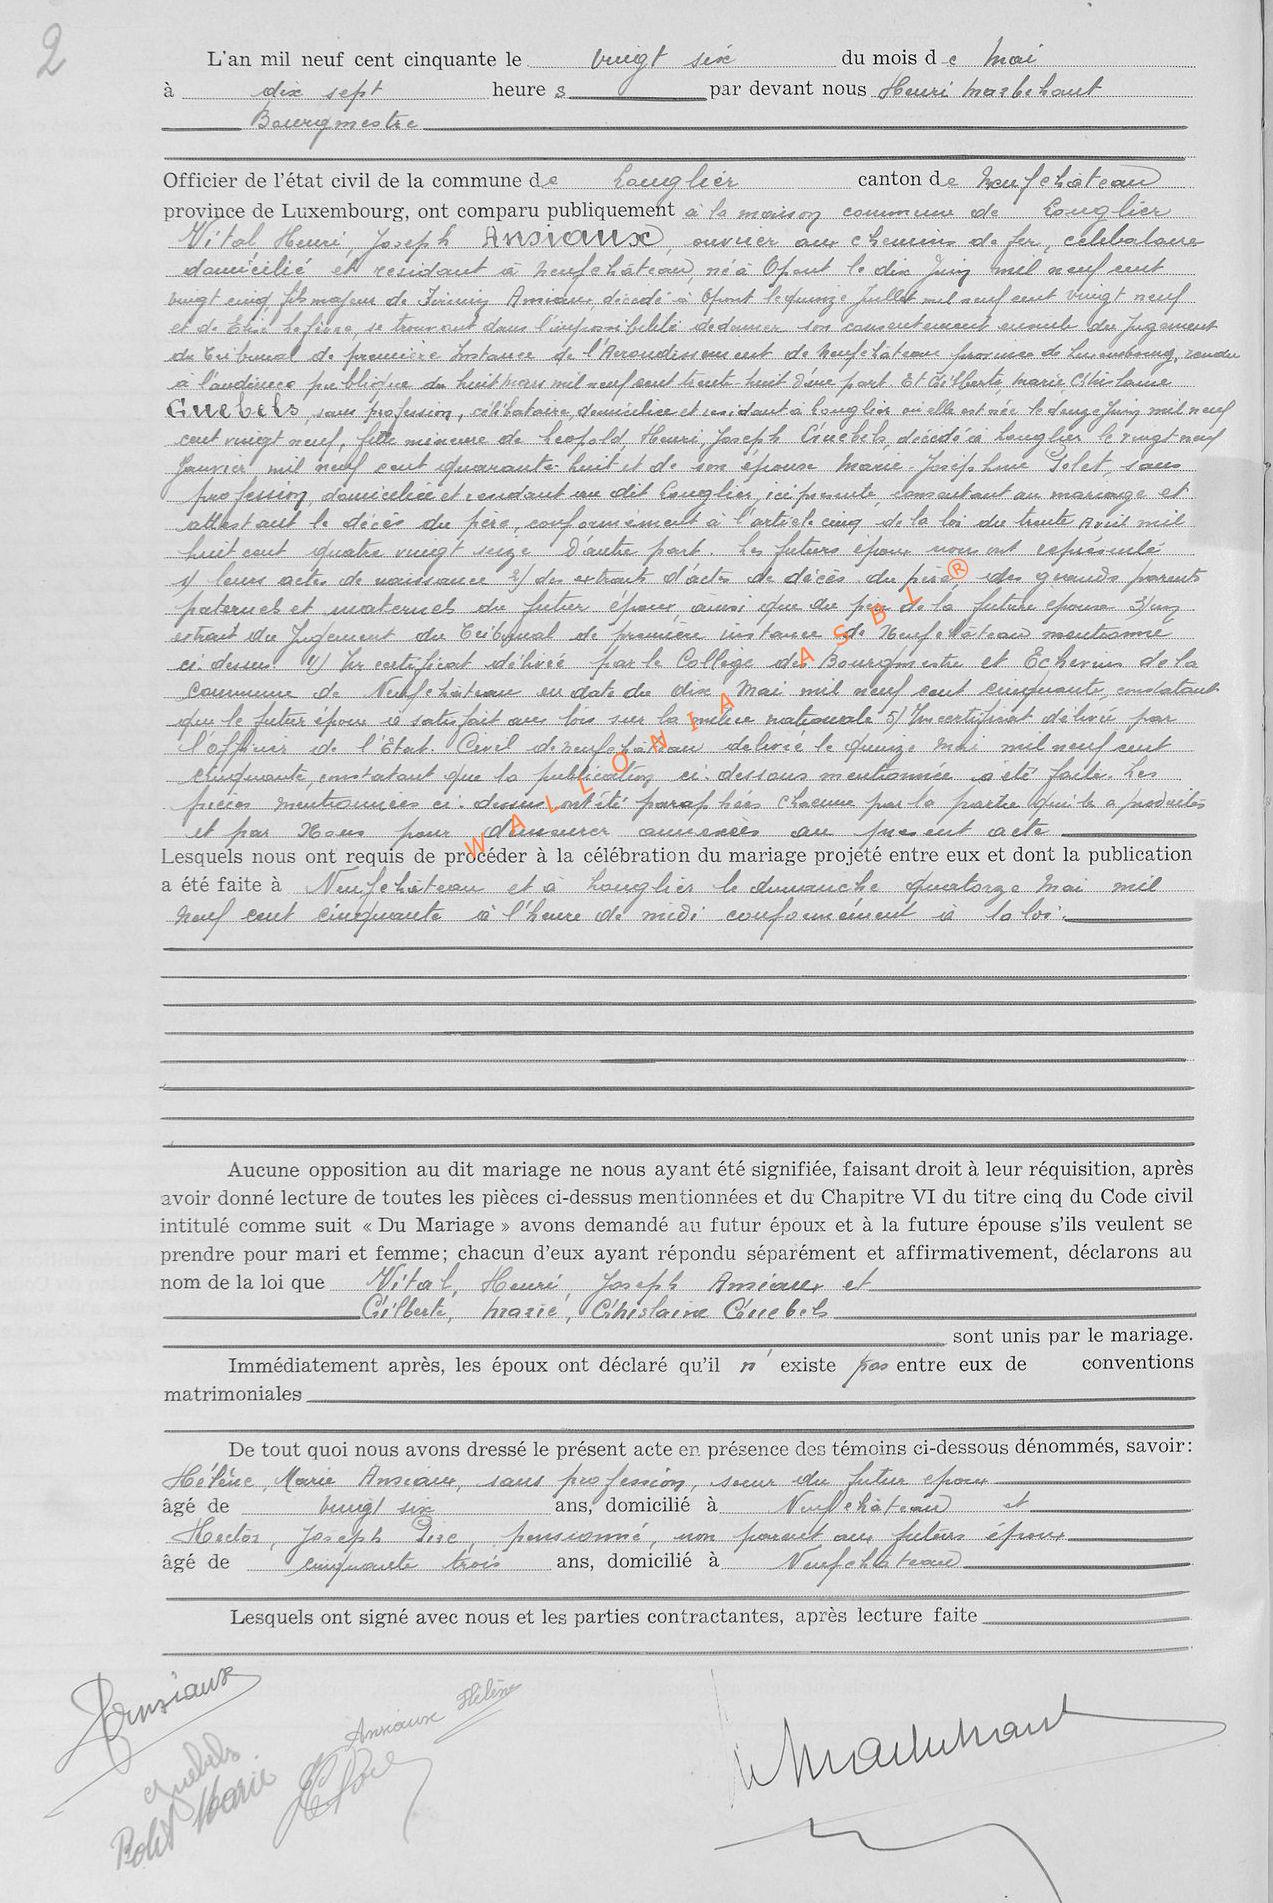 2
L'an mil neuf cent cinquante le vingt six du mois de Mai
à dix sept heures par devant nous Henri Marbehant
Bourgmestre
Officier de l'état civil de la commune de Longlier canton de Neufchâteau
province de Luxembourg, ont comparu publiquement à la maison commune de Longlier
Vital, Henri, Joseph Ansiaux, ouvrier aux chemins de fer, célibataire
domicilié et résidant à Neufchâteau, né à Opont le dix Juin mil neuf cent
vingt cinq fils majeur de Firmin Ansiaux, décédé à Opont le quinze Juillet mil neuf cent vingt neuf
et de Elise Lefèvre, se trouvant dans l'impossibilité de donner son consentement ensuite du Jugement
du Tribunal de première Instance de l'Arrondissement de Neufchâteau province de Luxembourg, rendu
à l'audience publique du huit Mars mil neuf cent trente-huit d'une part. Et Gilberte, Marie, Ghislaine
Guebels, sans profession, célibataire, domiciliée et résidant à Longlier où elle est née le douze Juin mil neuf
cent vingt neuf, fille mineure de Léopold, Henri, Joseph Guebels, décédé à Longlier le vingt neuf
Janvier mil neuf cent quarante-huit et de son épouse Marie-Joséphine Polet, sans
profession, domiciliée et résidant au dit Longlier, ici présente, consentant au mariage et
attestant le décès du père, conformément à l'article cinq de la loi du trente Avril mil
huit cent quatre vingt seize D'autre part. Les futurs époux nous ont représenté
1) leurs actes de naissance 2) des extraits d'actes de décès du père, des grands parents
paternels et maternels du futur époux ainsi que du père de la future épouse 3) un
extrait du Jugement du Tribunal de première instance de Neufchâteau mentionné
ci-dessus 4) Un certificat délivré par le Collège des Bourgmestre et Echevins de la
Commune de Neufchâteau en date du dix Mai mil neuf cent cinquante, constatant
que le futur époux a satisfait aux lois sur la milice nationale 5) Un certificat délivré par
l'officier de l'Etat-Civil de Neufchâteau délivré le quinze Mai mil neuf cent
cinquante, constatant que la publication ci-dessous mentionnée a été faite. Les
pièces mentionnées ci-dessus ont été paraphées chacune par la partie qui l'a produites
et par Nous pour demeurer annexées au présent acte
Lesquels nous ont requis de procéder à la célébration du mariage projeté entre eux et dont la publication
a été faite à Neufchâteau et à Longlier le dimanche quatorze Mai mil
neuf cent cinquante à l'heure de midi conformément à la loi.
Aucune opposition au dit mariage ne nous ayant été signifiée, faisant droit à leur réquisition, après
avoir donné lecture de toutes les pièces ci-dessus mentionnées et du Chapitre VI du titre cinq du Code civil
intitulé comme suit « Du Mariage » avons demandé au futur époux et à la future épouse s'ils veulent se
prendre pour mari et femme; chacun d'eux ayant répondu séparément et affirmativement, déclarons au
nom de la loi que Vital, Henri, Joseph Ansiaux et
Gilberte, Marie, Ghislaine Guebels
sont unis par le mariage.
Immédiatement après, les époux ont déclaré qu'il n'existe pas entre eux de conventions
matrimoniales
De tout quoi nous avons dressé le présent acte en présence des témoins ci-dessous dénommés, savoir:
Hélène, Marie Ansiaux, sans profession, sœur du futur époux
âgé de vingt six ans, domicilié à Neufchâteau et
Hector, Joseph pensionné, non parent aux futurs époux
âgé de cinquante trois ans, domicilié à Neufchâteau
Lesquels ont signé avec nous et les parties contractantes, après lecture faite
Ansiaux
Ansiaux Hélène
Guebels
Polet Marie
H Marbehant
WALLONIA ASBL ®